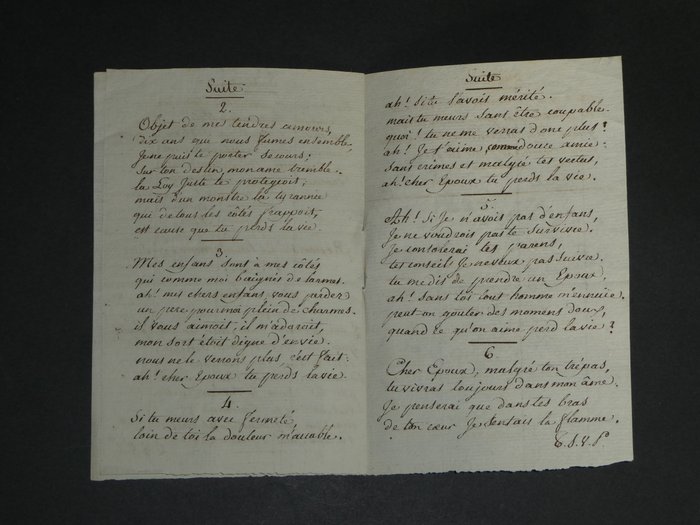 Suite
2.
Objet de mes tendres amours,
dix ans que nous fumes ensemble,
Je ne puis te preter secours;
Sur ton destin mon ame tremble.
la Loy Juste te protegeoit;
mais d'un monstre la tyrannie
qui de tous les côtés frappoit,
est cause que tu perds la vie.
3.
Mes enfans sont à mes côtés
qui comme moi baignés de larmes.
ah! mes chers enfans vous perdez
un pere pour moi plein de charmes.
il vous aimoit, il m'adoroit,
mon sort étoit digne d'envie.
nous ne le verrons plus c'est fait:
ah! cher Epoux tu perds la vie.
4.
Si tu meurs avec fermeté
loin de toi la douleur m'accable.
Suite
ah! si tu l'avois mérité.
mais tu meurs sans être coupable.
quoi! tu ne me verras donc plus?
ah! Je t'aime comme douce amie:
sans crimes et malgré tes vertus,
ah! cher Epoux tu perds la vie.
5.
Ah! Si Je n'avois pas d'enfans,
Je ne voudrois pas te Survivre.
Je consolerai tes parens,
ton conseil Je ne veux pas suivre.
tu me dis de prendre un Epoux,
ah! sans toi tout homme m'ennuie.
peut on gouter des momens doux,
quand ce qu'on aime perd la vie?
6
Cher Epoux, malgré ton trépas,
tu vivras toujours dans mon âme.
Je penserai que dans tes bras
de ton cœur Je sentais la flamme.
T. S. V. P.